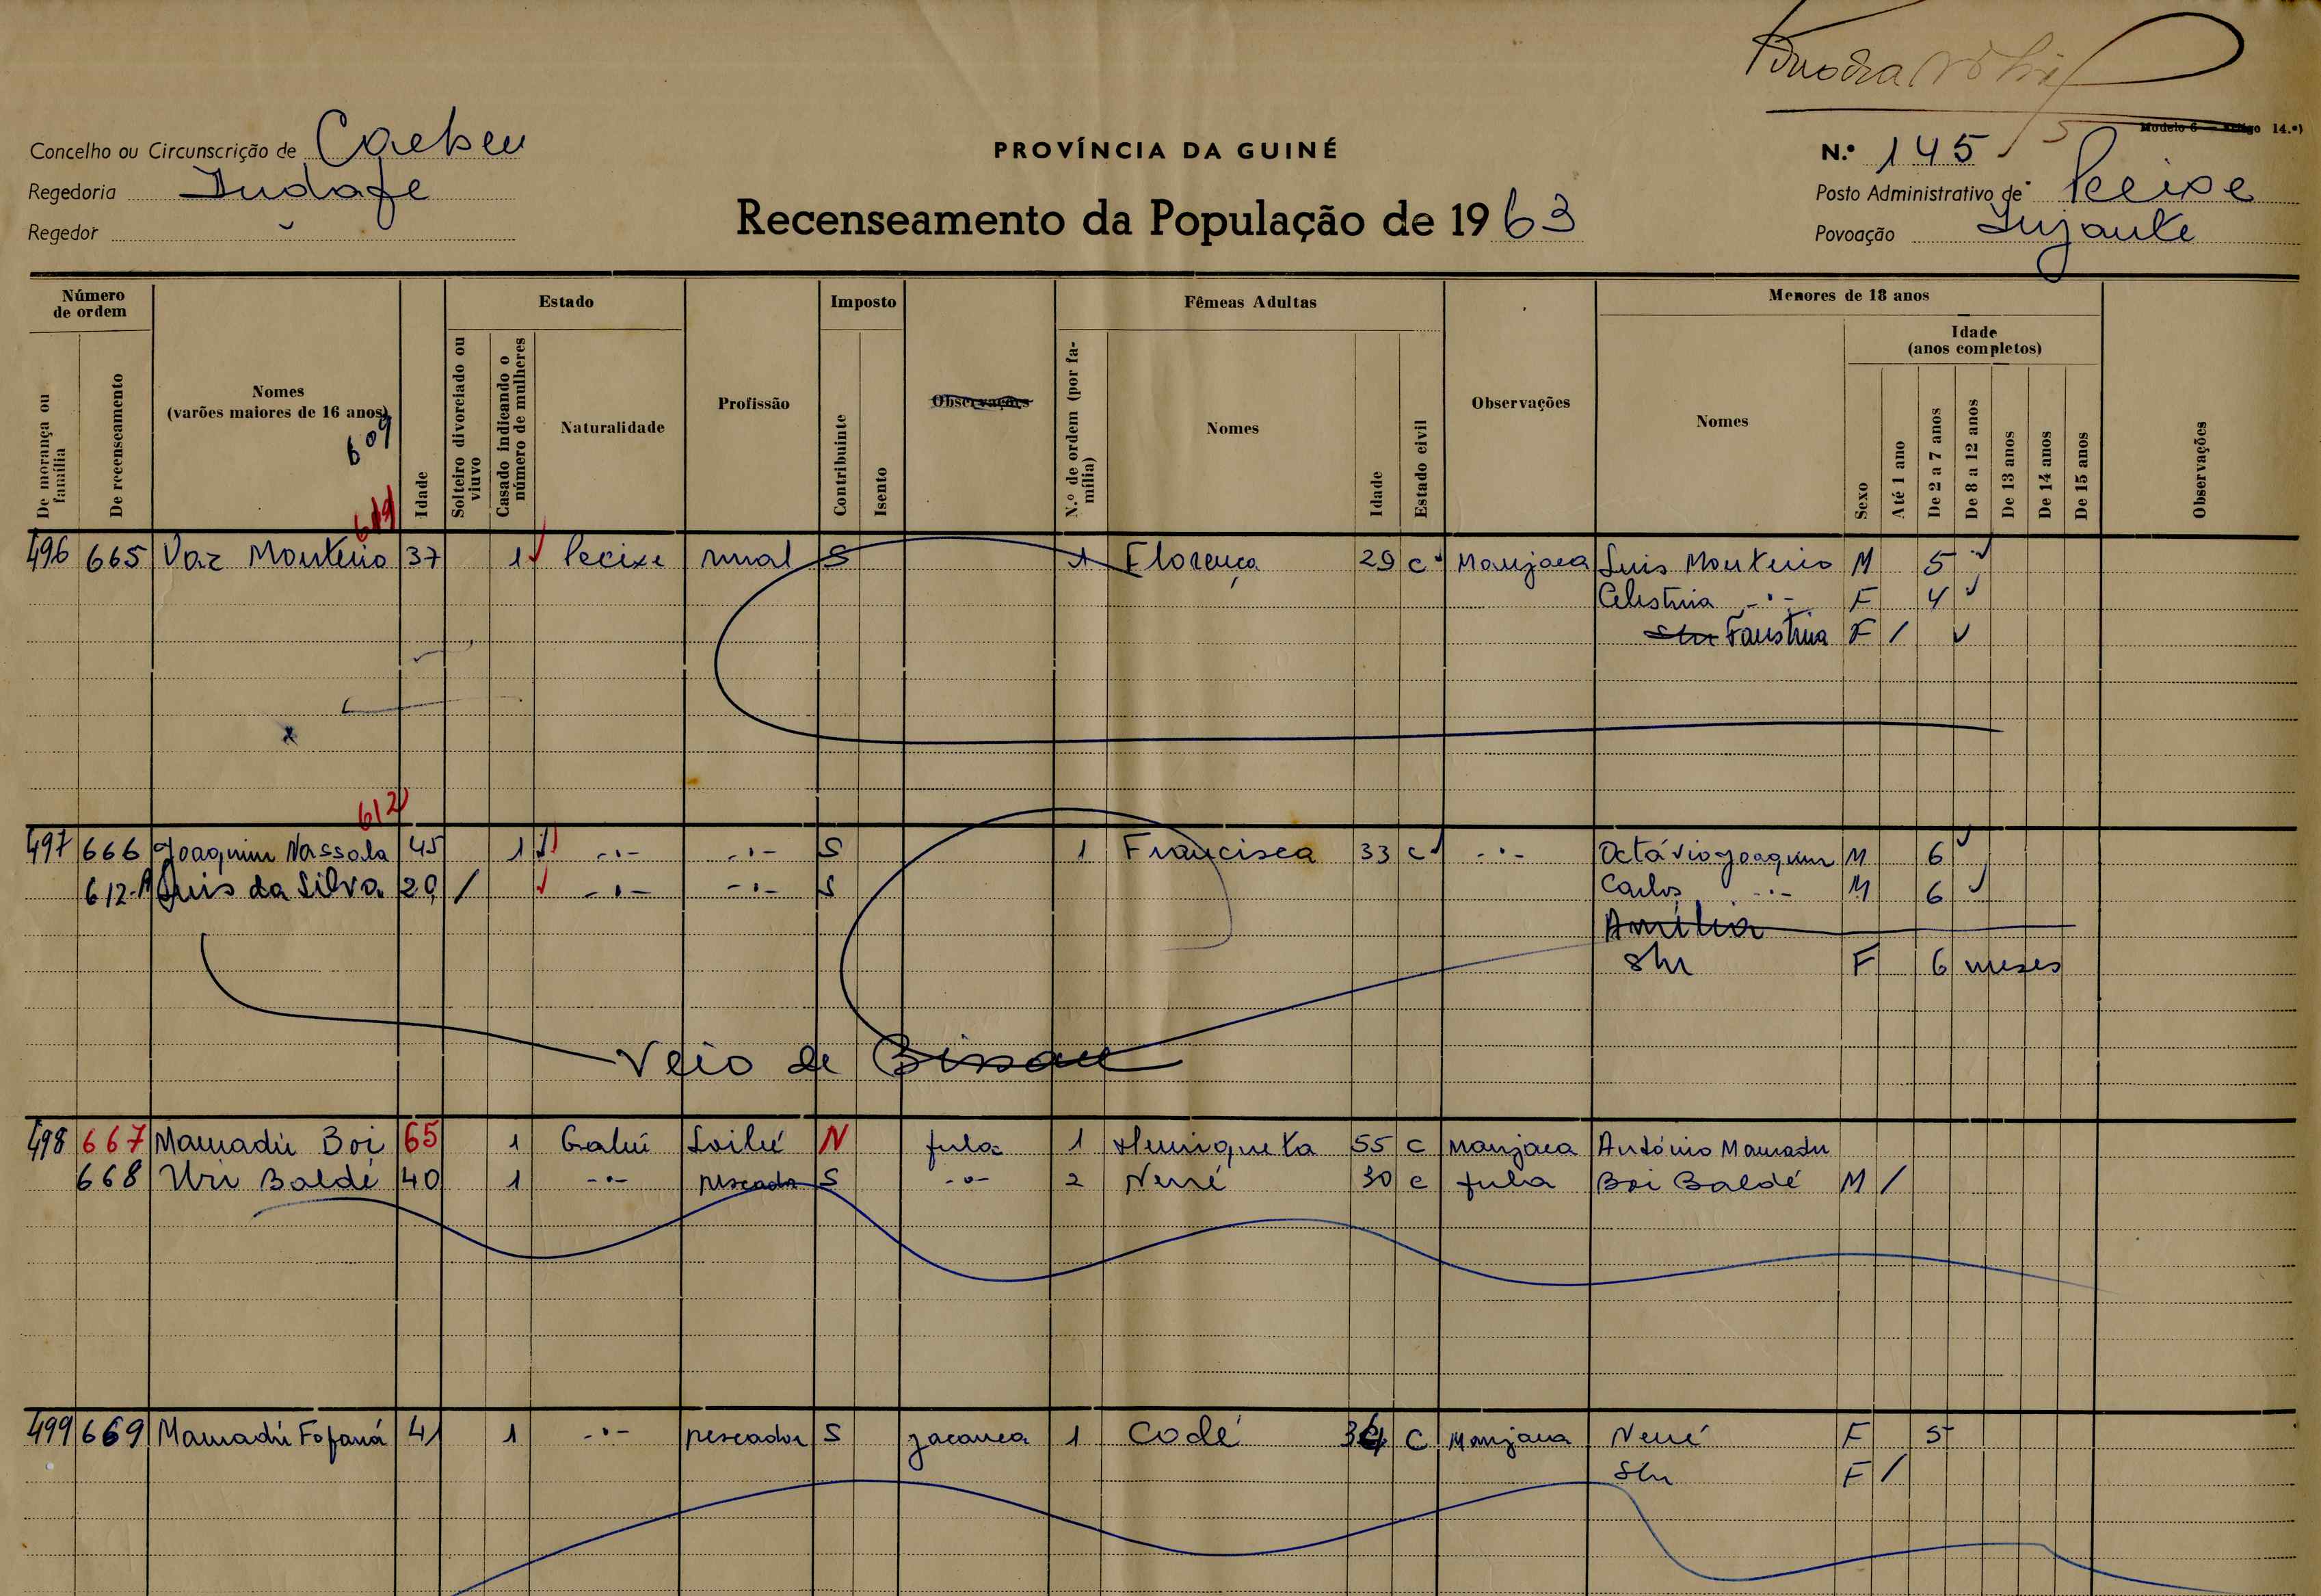 Modelo 6 — Artigo 14.º)
Concelho ou Circunscrição de Caebeu
PROVÍNCIA DA GUINÉ
N.º 145
Regedoria Indafe
Recenseamento da População de 1963
Posto Administrativo de Pecixe
Regedor
Povoação Injante
Número de ordem
Estado
Imposto
Fêmeas Adultas
Menores de 18 anos
De morança ou família
De recenseamento
Nomes
(varões maiores de 16 anos)
609
Idade
Solteiro divorciado ou viuvo
Casado indicando o número de mulheres
Naturalidade
Profissão
Contribuinte
Isento
Observações
N.º de ordem (por família)
Nomes
Idade
Estado civil
Observações
Nomes
Sexo
Idade
(anos completos)
Até 1 ano
De 2 a 7 anos
De 8 a 12 anos
De 13 anos
De 14 anos
De 15 anos
Observações
496 665 Vaz Monteiro 37 1 Pecixe rural S 1 Florença 29 c Manjaca Luis Monteiro M 5
Celestina -"- F 4
Shr Faustina F /
612
497 666 Joaquim Nassala 45 1 -"- -"- S 1 Francisca 33 c -"- Octávio Joaquim M 6
612-A Luis da Silva 20 / -"- -"- S Carlos -"- M 6
Amélia
Shr F 6 meses
Veio de Bissau
498 667 Mamadú Boi 65 1 Gabú Loilé N fula 1 Henriqueta 55 c manjaca António Mamadu
668 Uri Baldé 40 1 -"- pescador S -"- 2 Nené 30 c fula Boi Baldé M /
499 669 Mamadú Fofaná 41 1 -"- pescador S jacanca 1 Codé 34 c Manjaca Nené F 5
Shr F /